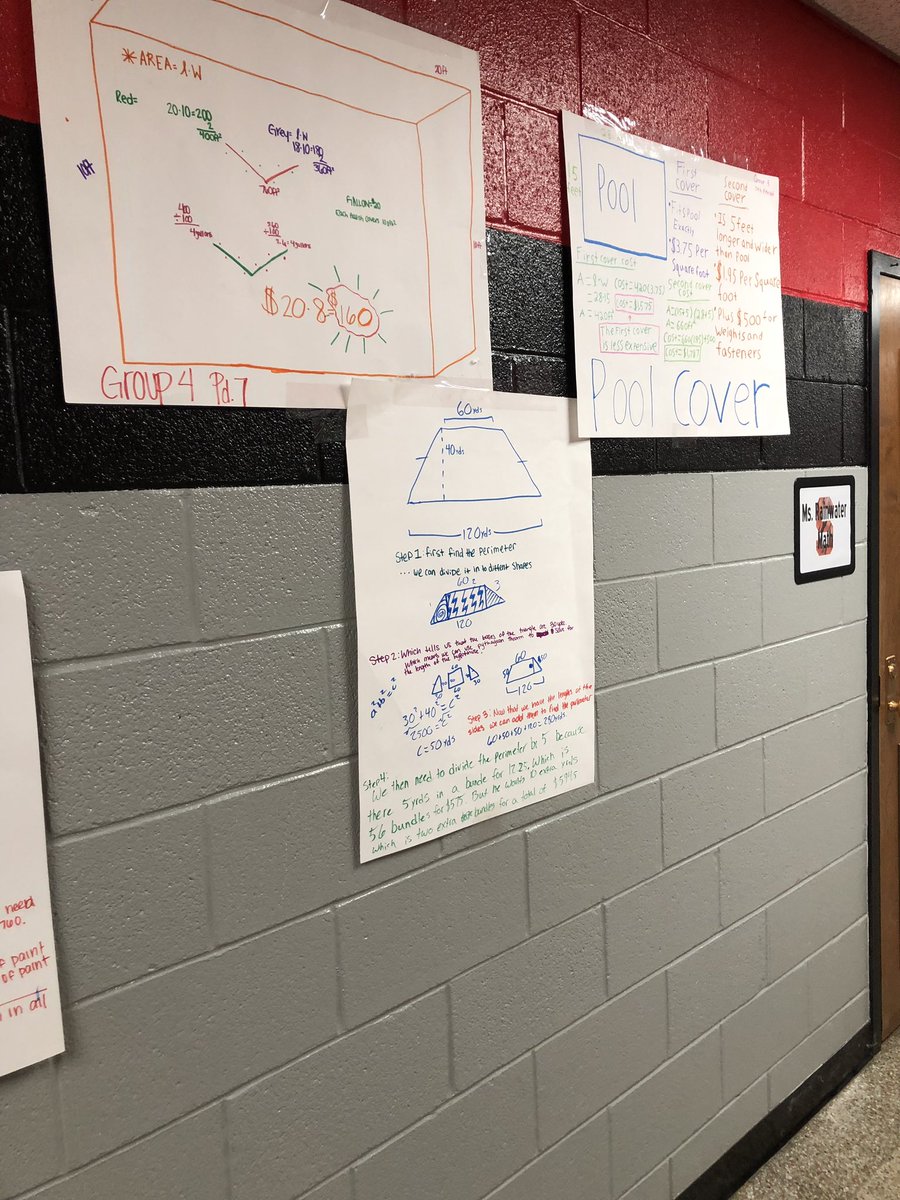 20ft
*AREA = l·W
Red=
20·10=200
2
400ft²
Grey= l·W
18·10=180
2
360ft²
760ft²
10ft
1 GALLON=$20
400
÷100
4gallons
360
÷100
3.6=4gallons
$20·8=$160
Group 4 Pd.7
5
feet
Pool
First
cover
•Fits Pool
Exactly
•$3.75 Per
Square foot
Second
cover
•Is 5 feet
longer and wider
than Pool
•$1.95 Per Square
foot
•Plus $500 for
weights and
fasteners
First cover cost
A=l·W
=28·15
A=420ft²
Cost=420(3.75)
Cost=$1,575
The first cover
is less expensive
Second cover
cost
Cost=$1,787
Pool Cover
60yds
40yds
120yds
Step 1: first find the perimeter
...we can divide it in to different shapes
60
2
3
120
Step 2: Which tells us that the bases of the triangle are 30yds
which means we can use pythagrean theorm to solve for
the length of the hypotenuse.
a²+b²=c²
30²+40²=c²
√2500=c²
c=50yds
60
Step 3: Now that we have the lengths of the
sides we can add them to find the perimeter
60+50+50+120=280yards
Step 4:
We then need to divide the perimeter by 5 because
there 5yrds in a bundle for Which is
56 bundles for But he wants 10 extra yrds
which is two extra bundles for a total of
Ms. Rainwater
Math
need
760.
of paint
of paint
in all